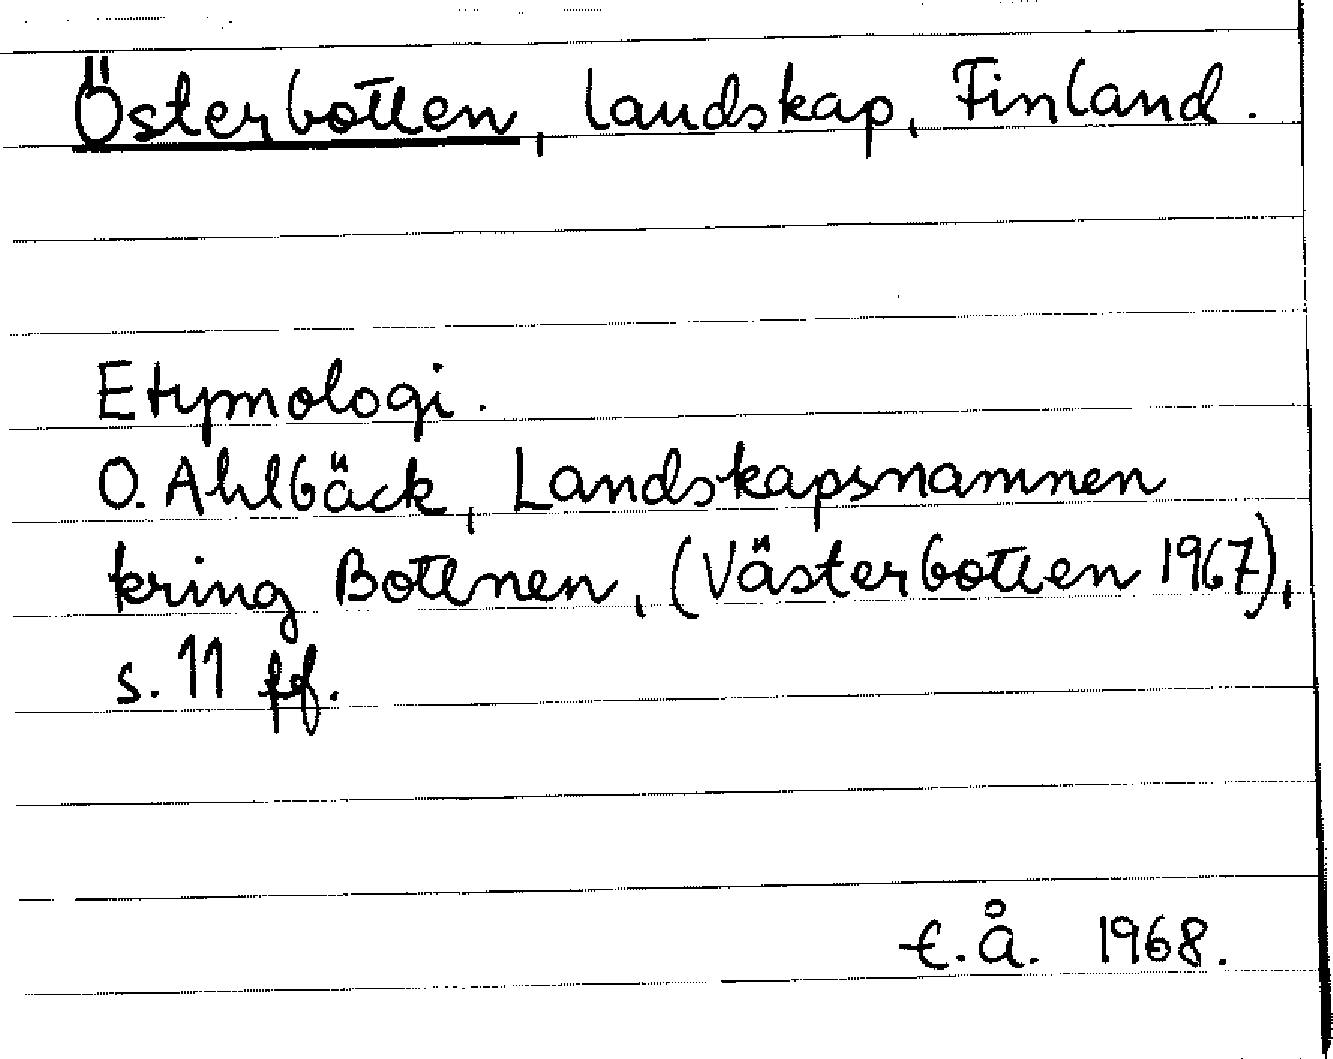 Österbotten, landskap, Finland.
Etymologi.
O. Ahlbäck, Landskapsnamnen
kring Bottnen, (Västerbotten 1967),
s. 11 ff.
E.Å. 1968.